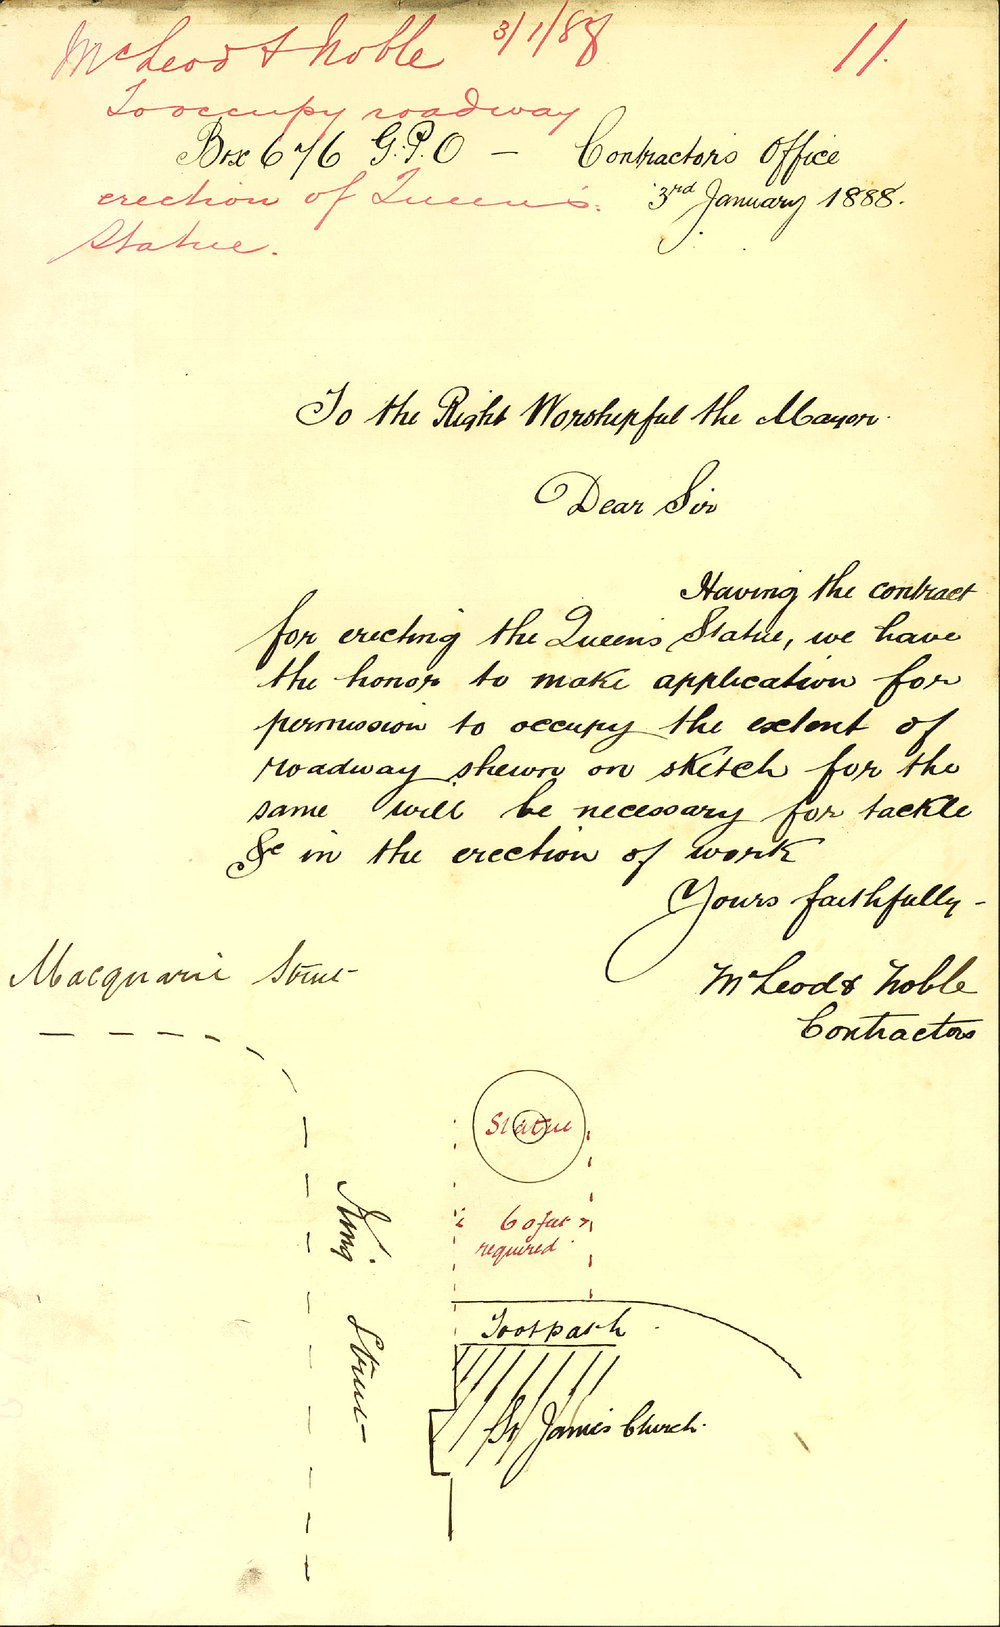 McLeod & Noble 3/1/88
11.
To occupy roadway
Box 676 G.P.O — Contractors Office
erection of Queen's
3rd January 1888.
Statue.
To the Right Worshipful the Mayor
Dear Sir
Having the contract
for erecting the Queen's Statue, we have
the honor to make application for
permission to occupy the extent of
roadway shewn on sketch for the
same will be necessary for tackle
&c in the erection of work
Yours faithfully -
McLeod & Noble
Contractors
Macquarie Street
Statue
60 feet
required
King Street
Footpath
St James Church.